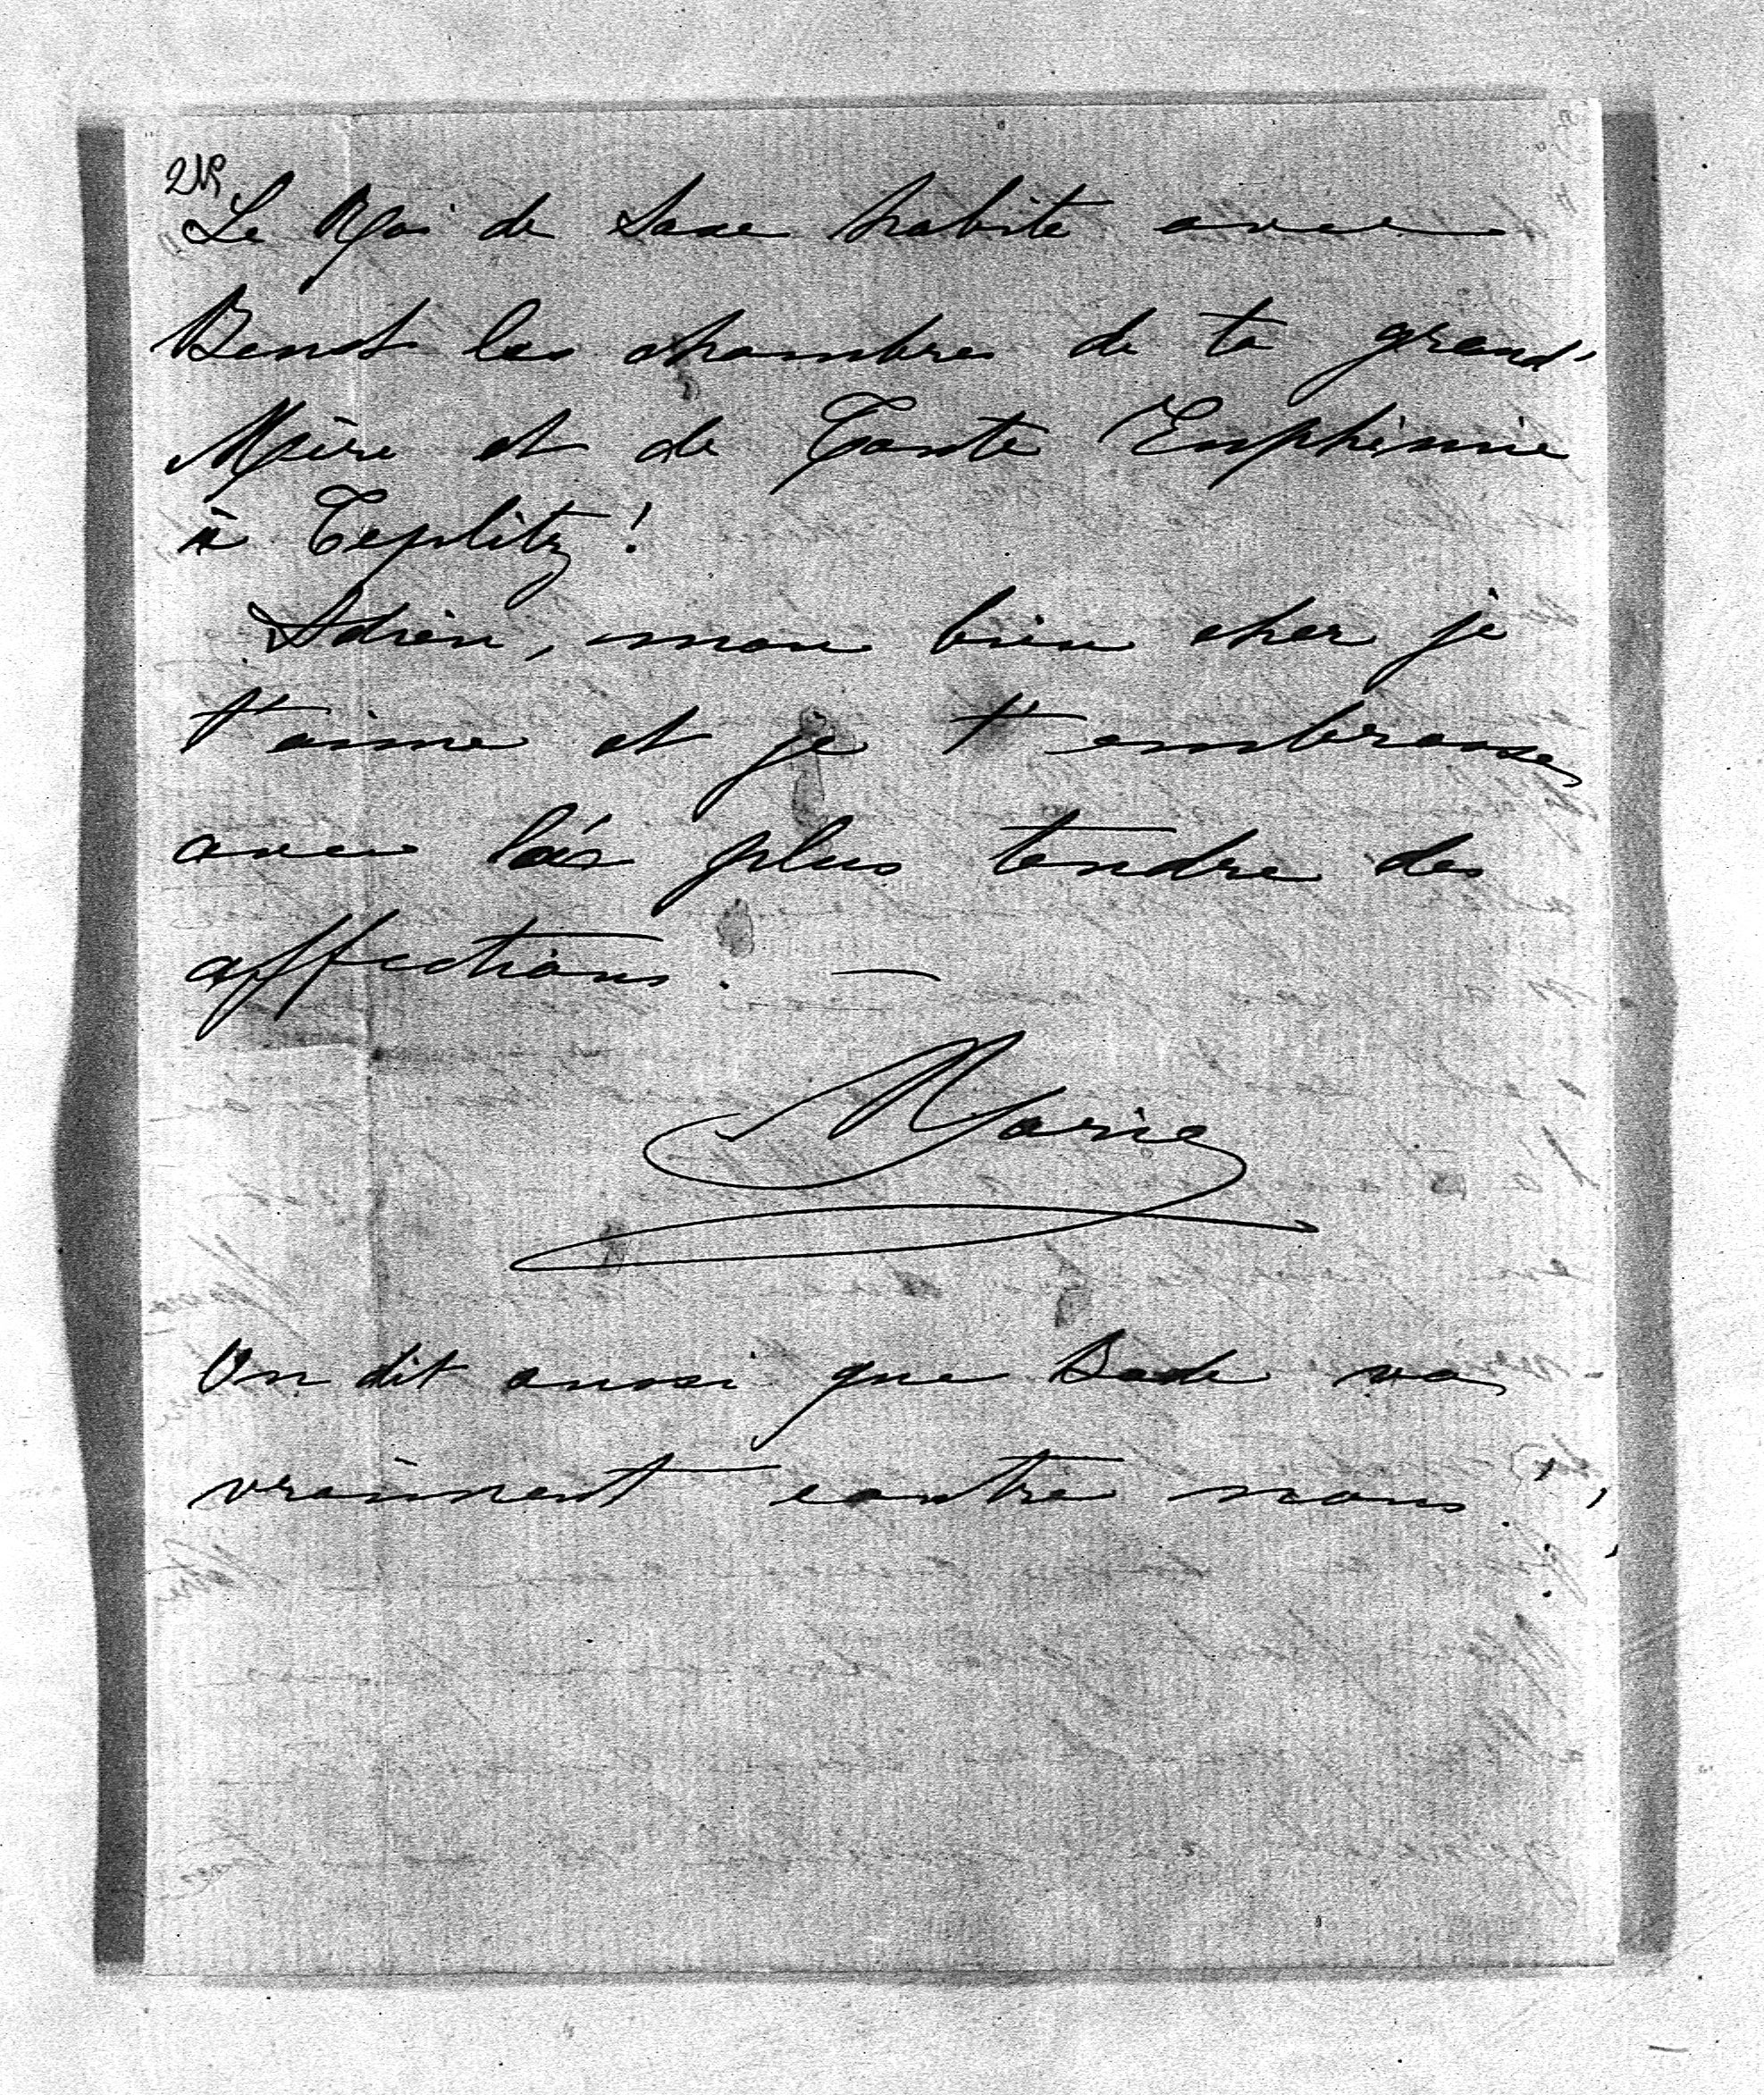 Le Roi de Saxe habite avec
Benst les chambres de ta grand'
Mère et de Tante Euphémie
à Teplitz!
Adieu, mon bien cher je
t'aime et je t'embrasse
avec la plus tendre des
affections. —
Marie
On dit aussi que Bade va
vraiment contre nous!